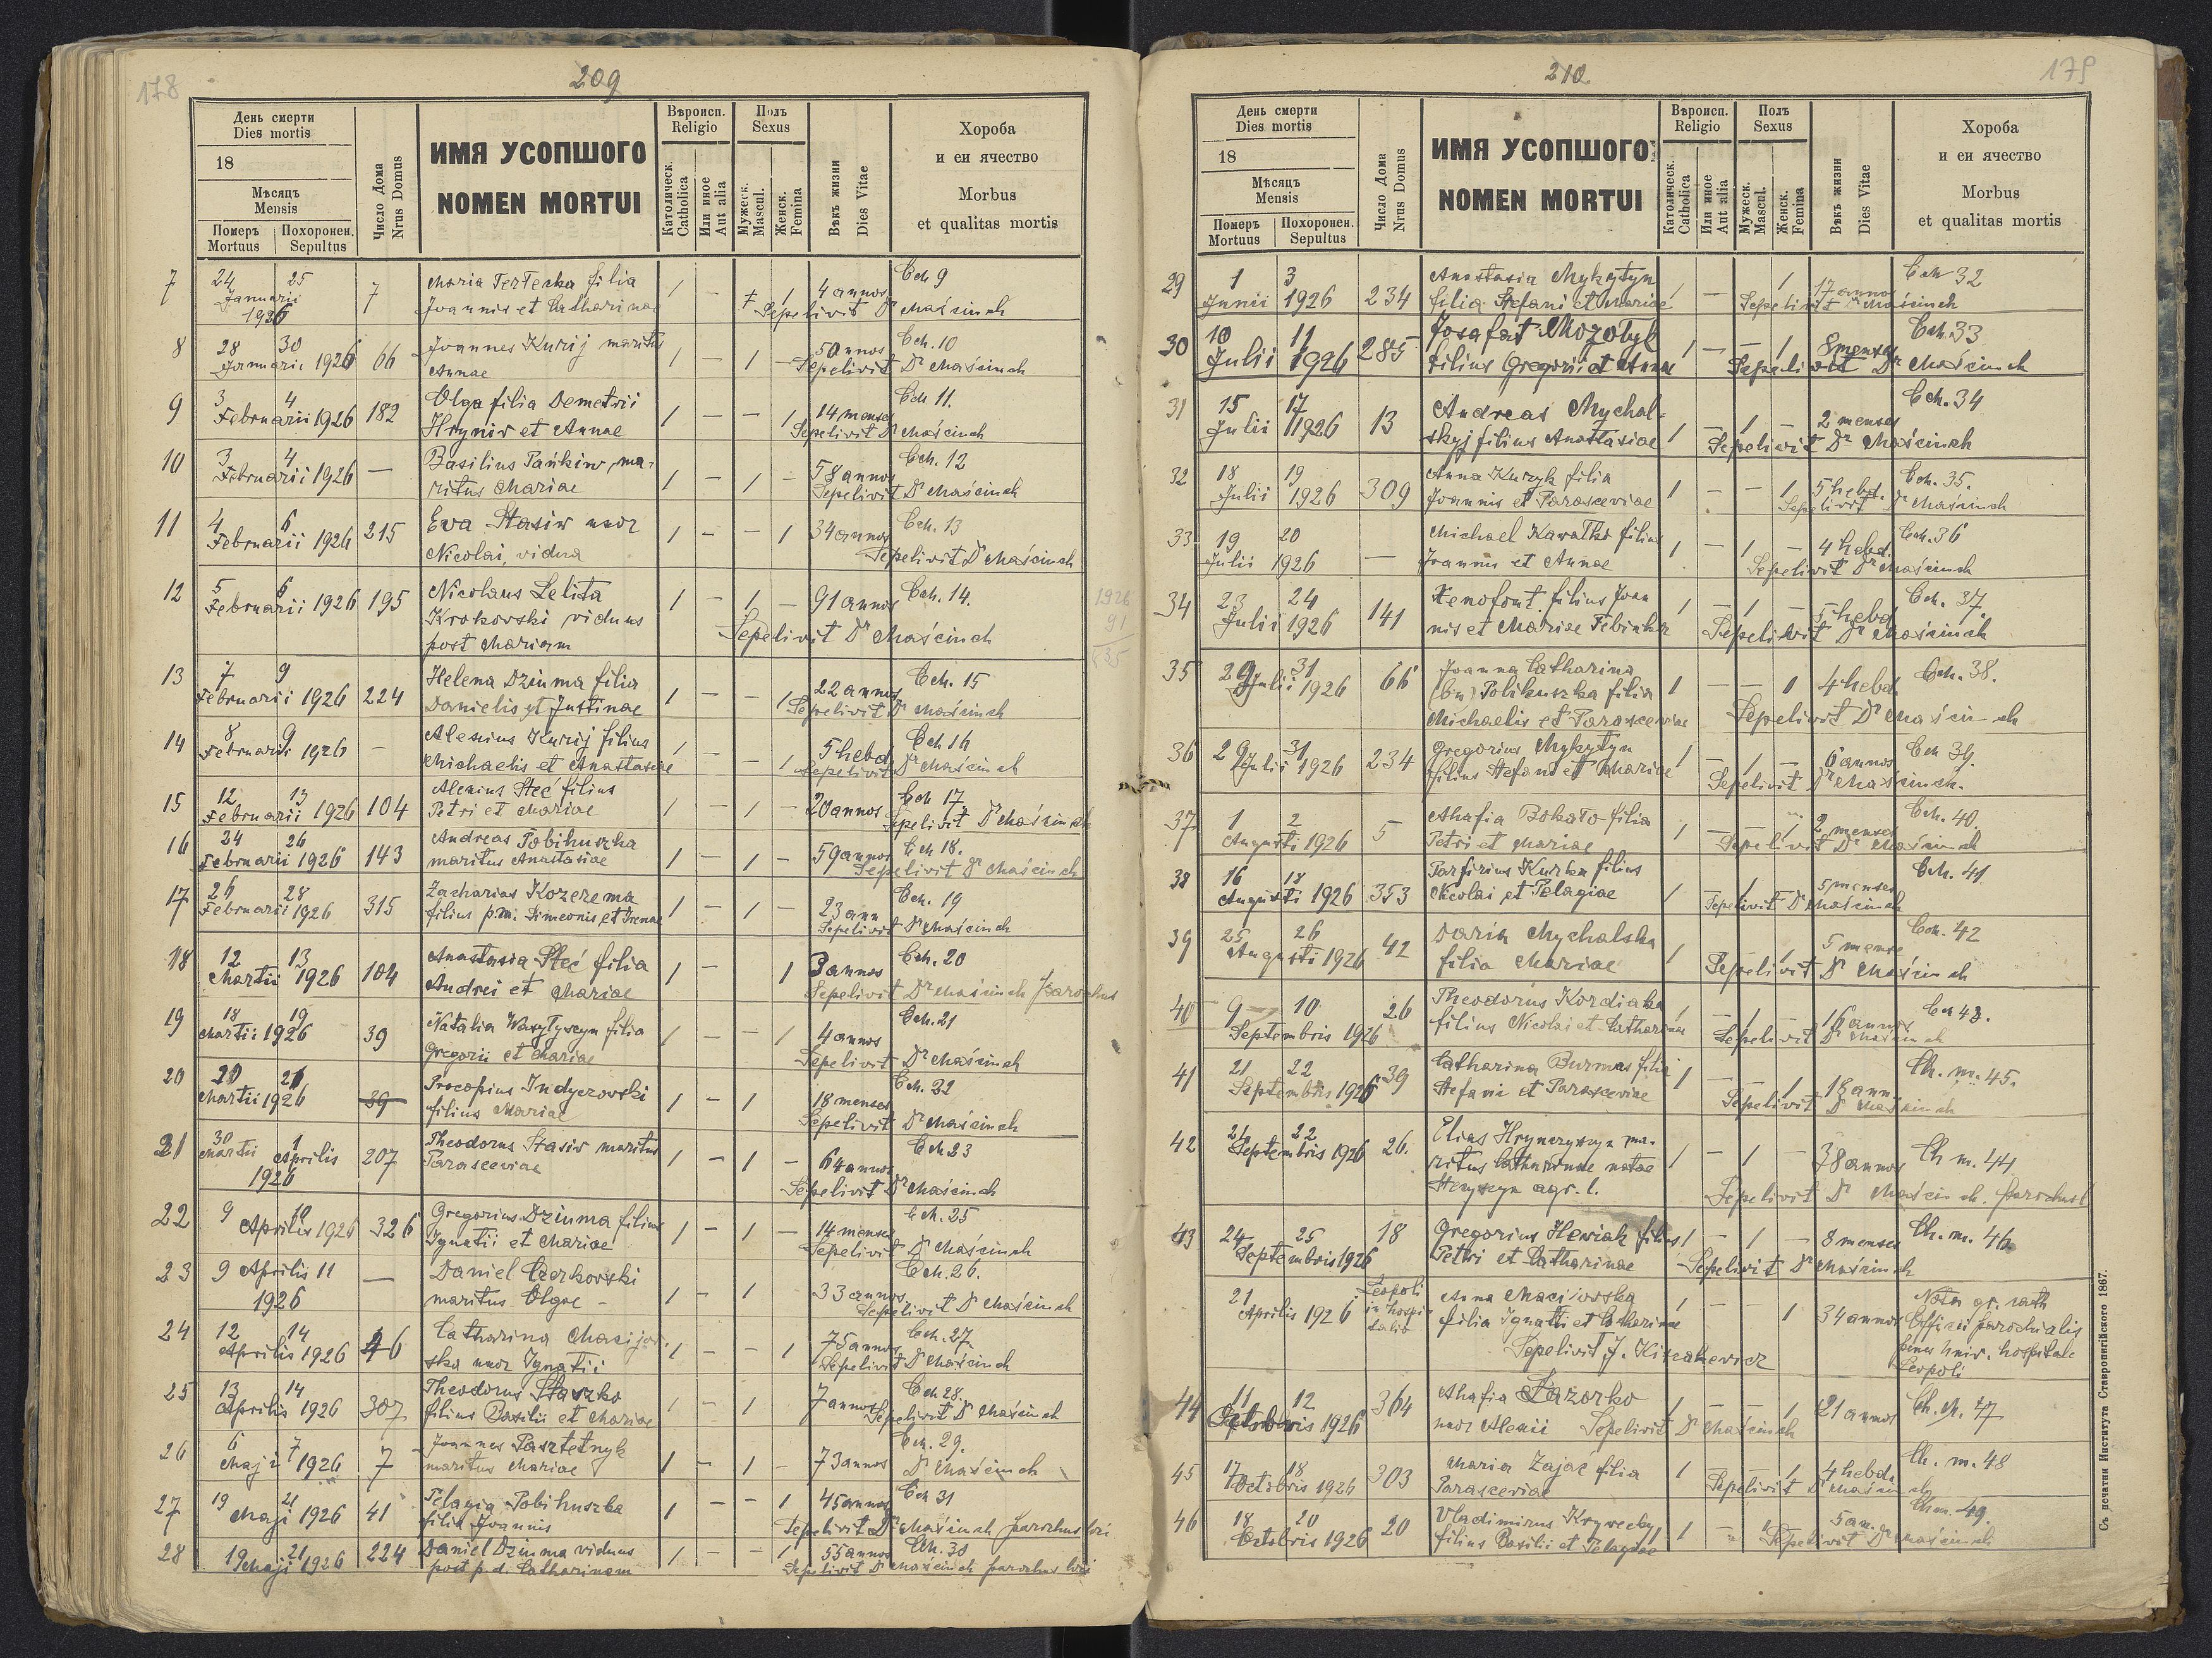 178
209
День смерти
Dies mortis
18
Мѣсяцъ
Mensis
Померъ
Mortuus
Похоронен.
Sepultus
Число Дома
Nrus Domus
ИМЯ УСОПШОГО
NOMEN MORTUI
Вѣроисп.
Religio
Католическ.
Catholica
Или иное
Aut alia
Полъ
Sexus
Мужеск.
Mascul.
Женск.
Femina
Вѣкъ жизни
Dies Vitae
Хороба
и еи ячество
Morbus
et qualitas mortis
7 24 25 Januarii 1926 7 Maria Terlecka filia 1 – 1 4 annos Cch 9
Joannis et Catharinae Sepelivit Dr Maścinch
8 28 30 Januarii 1926 66 Joannes Kurij maritus 1 – 1 – 50 annos Cch. 10
Annae Sepelivit Dr Maścinch
9 3 4 Februarii 1926 182 Olga filia Demetrii 1 – – 1 14 menses Cch 11.
Hryniw et Annae Sepelivit Dr Maścinch
10 3 4 Februarii 1926 — Basilius Pańkiw, ma- 1 – 1 – 58 annos Cch. 12
ritus Mariae Sepelivit Dr Maścinch
11 4 6 Februarii 1926 215 Eva Stasiw uxor 1 – – 1 34 annos Cch. 13
Nicolai, vidua Sepelivit Dr Maścinch
12 5 6 Februarii 1926 195 Nicolaus Lelita 1 – 1 – 91 annos Cch. 14.
Krokovski viduus Sepelivit Dr Maścinch
post Mariam
1926
91
13 7 9 Februarii 1926 224 Helena Dziuma filia 1 – – 1 22 annos Cch. 15
Danielis et Justinae Sepelivit Dr Maścinch
14 8 9 Februarii 1926 – Alexius Kurij filius 1 – – 1 5 hebd. Cch 16
Michaelis et Anastasiae Sepelivit Dr Maścinch
15 12 13 Februarii 1926 104 Alexius Steć filius 1 – 1 – 20 annos Cch 17
Petri et Mariae Sepelivit Dr Maścinch
16 24 26 Februarii 1926 143 Andreas Pobihuszka 1 – 1 – 59 annos Cch 18.
maritus Anastasiae Sepelivit Dr Maścinch
17 26 28 Februarii 1926 315 Zacharias Kozerema 1 – 1 – 23 ann Cch. 19
filius p.m. Simeonis et Irenae Sepelivit Dr Maścinch
18 12 13 Martii 1926 104 Anastasia Steć filia 1 – 1 3 annos Cch. 20
Andrei et Mariae Sepelivit Dr Maścinch Parochus
19 18 19 Martii 1926 39 Natalia Wasylyszyn filia 1 – – 1 4 annos Cch. 21
Gregorii et Mariae Sepelivit Dr Maścinch
20 20 21 Martii 1926 39 Procopius Indyczovski 1 – 1 18 menses Cch. 22
filius Mariae Sepelivit Dr Maścinch
21 30 Martii 1 Aprilis 1926 207 Theodorus Stasiw maritus 1 – 1 – 64 annos Cch 23
Parasceviae Sepelivit Dr Maścinch
22 9 10 Aprilis 1926 326 Gregorius Dziuma filius 1 – 1 – 14 menses Cch. 25
Ignatii et Mariae Sepelivit Dr Maścinch
23 9 Aprilis 11 1926 — Daniel Czerkovski 1 – 1 33 annos Cch. 26.
maritus Olgae – Sepelivit Dr Maścinch
24 12 14 Aprilis 1926 46 Catharina Macijow- 1 – – 1 75 annos Cch. 27.
ska uxor Ignatii Sepelivit Dr Maścinch
25 13 14 Aprilis 1926 307 Theodorus Staszko 1 – 1 7 annos Cch 28.
filius Basilii et Mariae Sepelivit Dr Maścinch
26 6 7 Maji 1926 7 Joannes Pasztetnyk 1 – 1 – 73 annos Cch. 29.
maritus Mariae Dr Maścinch
27 19 21 Maji 1926 41 Pelagia Pobihuszka 1 – – 1 45 annos Cch 31
filia Joannis Sepelivit Dr Maścinch parochus loci
28 19 21 Maji 1926 224 Daniel Dziuma viduus 1 – – 1 55 annos Cch. 30
post p.d. Catharinam Sepelivit Dr Maścinch parochus loci
179
210
День смерти
Dies mortis
18
Мѣсяцъ
Mensis
Померъ
Mortuus
Похоронен.
Sepultus
Число Дома
Nrus Domus
ИМЯ УСОПШОГО
NOMEN MORTUI
Вѣроисп.
Religio
Католическ.
Catholica
Или иное
Aut alia
Полъ
Sexus
Мужеск.
Mascul.
Женск.
Femina
Вѣкъ жизни
Dies Vitae
Хороба
и еи ячество
Morbus
et qualitas mortis
29 1 3 Junii 1926 234 Anastasia Mykytyn 1 – 1 17 annos Cch 32
filia Stefani et Mariae Sepelivit Dr Maścinch
30 10 11 Julii 1926 285 Josafat Mozolyk 1 – – 1 8 menses Cch. 33
filius Gregorii et Annae Sepelivit Dr Maścinch
31 15 17 Julii 1926 13 Andreas Mychal- 1 – 1 – 2 menses Cch. 34
skyj filius Anastasiae Sepelivit Dr Maścinch
32 18 19 Julii 1926 309 Anna Kuzyk filia 1 – – 1 5 hebd. Cch. 35.
Joannis et Parasceviae Sepelivit Dr Maścinch
33 19 20 Julii 1926 — Michael Kawalko filius 1 – 1 – 4 hebd. Cch. 36
Joannis et Annae Sepelivit Dr Maścinch
34 23 24 Julii 1926 141 Xenofont. filius Joan 1 – 1 – 5 hebd Cch. 37.
nis et Mariae Tebinka Sepelivit Dr Maścinch
35 29 31 Julii 1926 66 Joanna Catharina 1 – – 1 4 hebd. Cch. 38.
(bin) Pobihuszka filia
Michaelis et Parasceviae Sepelivit Dr Maścinch
36 29 31 Julii 1926 234 Gregorius Mykytyn 1 – 1 – 6 annos Cch 39.
filius Stefani et Mariae Sepelivit Dr Maścinch.
37 1 2 Augusti 1926 5 Ahafia Bokalo filia 1 – – 1 2 menses Cch. 40.
Petri et Mariae Sepelivit Dr Maścinch
38 16 18 Augusti 1926 353 Porfirius Kurka filius 1 – 1 – 5 menses Cch. 41
Nicolai et Pelagiae Sepelivit Dr Maścinch
39 25 26 Augusti 1926 42 Daria Mychalska 1 – – 1 5 mense Cch. 42
filia Mariae Sepelivit Dr Maścinch
40 9 10 Septembris 1926 26 Theodorus Kordiaka 1 – 1 – 16 annos Cch 43.
filius Nicolai et Catharinae Sepelivit Dr Maścinch
41 21 22 Septembris 1926 39 Catharina Burmas filia 1 – – 1 18 ann Ch. m. 45.
Stefani et Parasceviae Sepelivit Dr Maścinch
42 21 22 Septembris 1926 26. Elias Hrynczyszyn ma- 1 – 1 – 38 annos Ch m. 44
ritus Catharinae natae Sepelivit Dr Maścinch. parochus l
Stecyszyn agr. l.
43 24 25 Septembris 1926 18 Gregorius Hewiak filius 1 – 1 – 8 menses Ch. m. 46
Petri et Catharinae Sepelivit Dr Maścinch
21 Aprilis 1926 Leopoli in hospi- talio Anna Maciiovska 1 – – 1 34 annos Nota gr. cath
filia Ignatii et Catharinae Officii parochialis
Sepelivit J. Kizakevicz penes univ. hospitale
Leopoli
44 11 12 Octobris 1926 364 Ahafia Lazorko 1 – – 1 21 annos Ch. m. 47
uxor Alexii Sepelivit Dr Maścinch
45 17 18 Octobris 1926 303 Maria Zając filia 1 – – 1 4 hebd. Ch. m. 48
Parasceviae Sepelivit Dr Maścinch
46 18 20 Octobris 1926 20 Vladimirus Kryvecky 1 – 1 5 an. Ch m. 49.
filius Basilii et Pelagiae Sepelivit Dr Maścinch
Съ печатни Института Ставропигійского 1867.